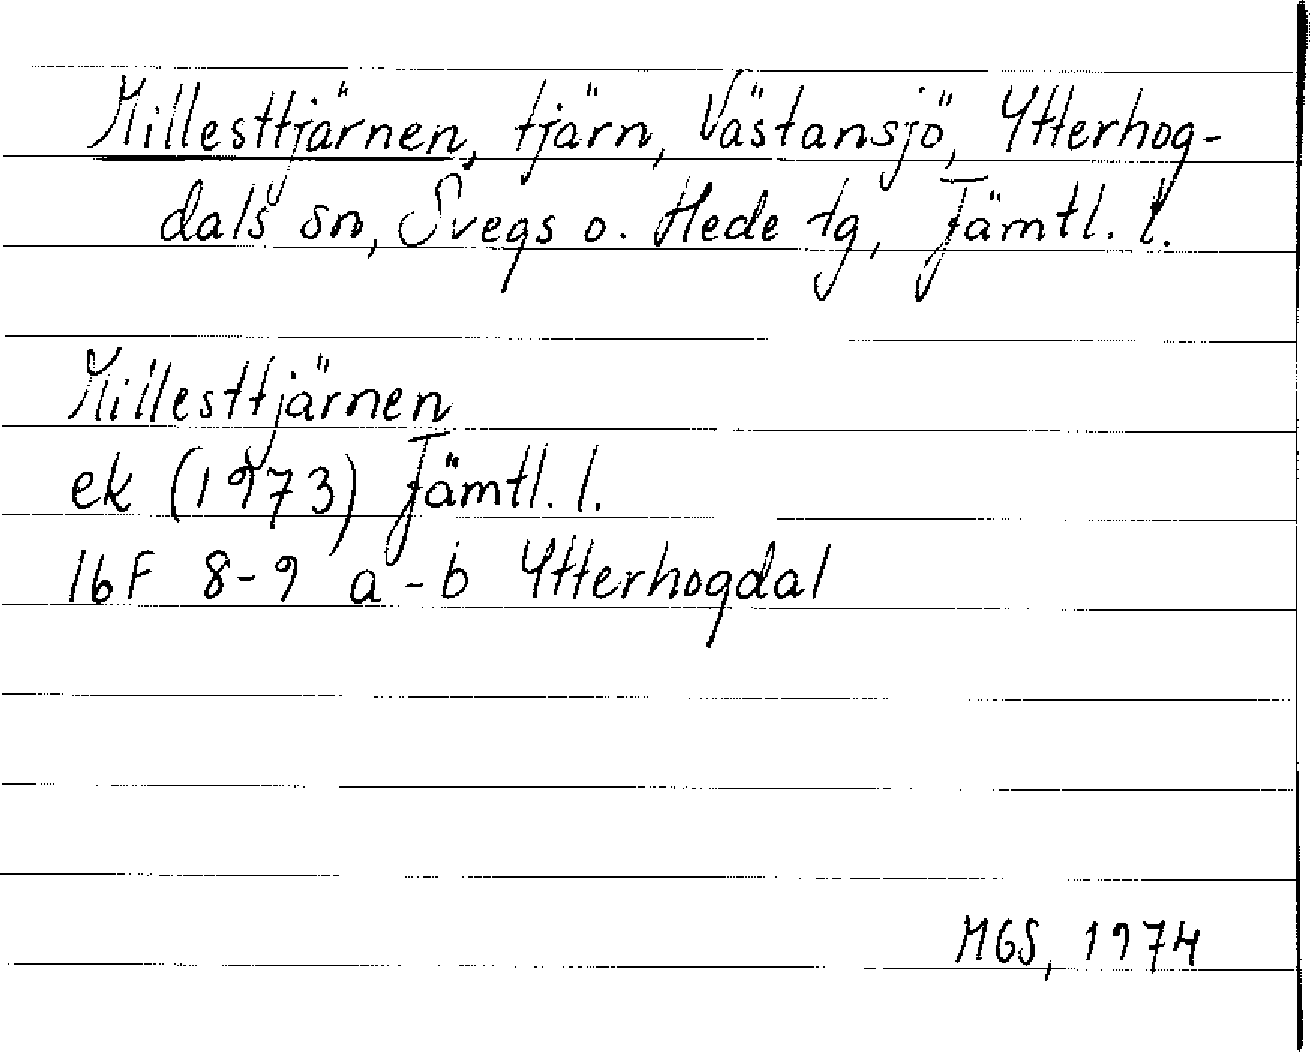 Millesttjärnen, tjärn, Västansjö, Ytterhog-
dals sn, Svegs o. Hede tg, Jämtl. l.
Millesttjärnen
ek (1973) Jämtl. l.
16F 8-9 a-b Ytterhogdal
MGS, 1974